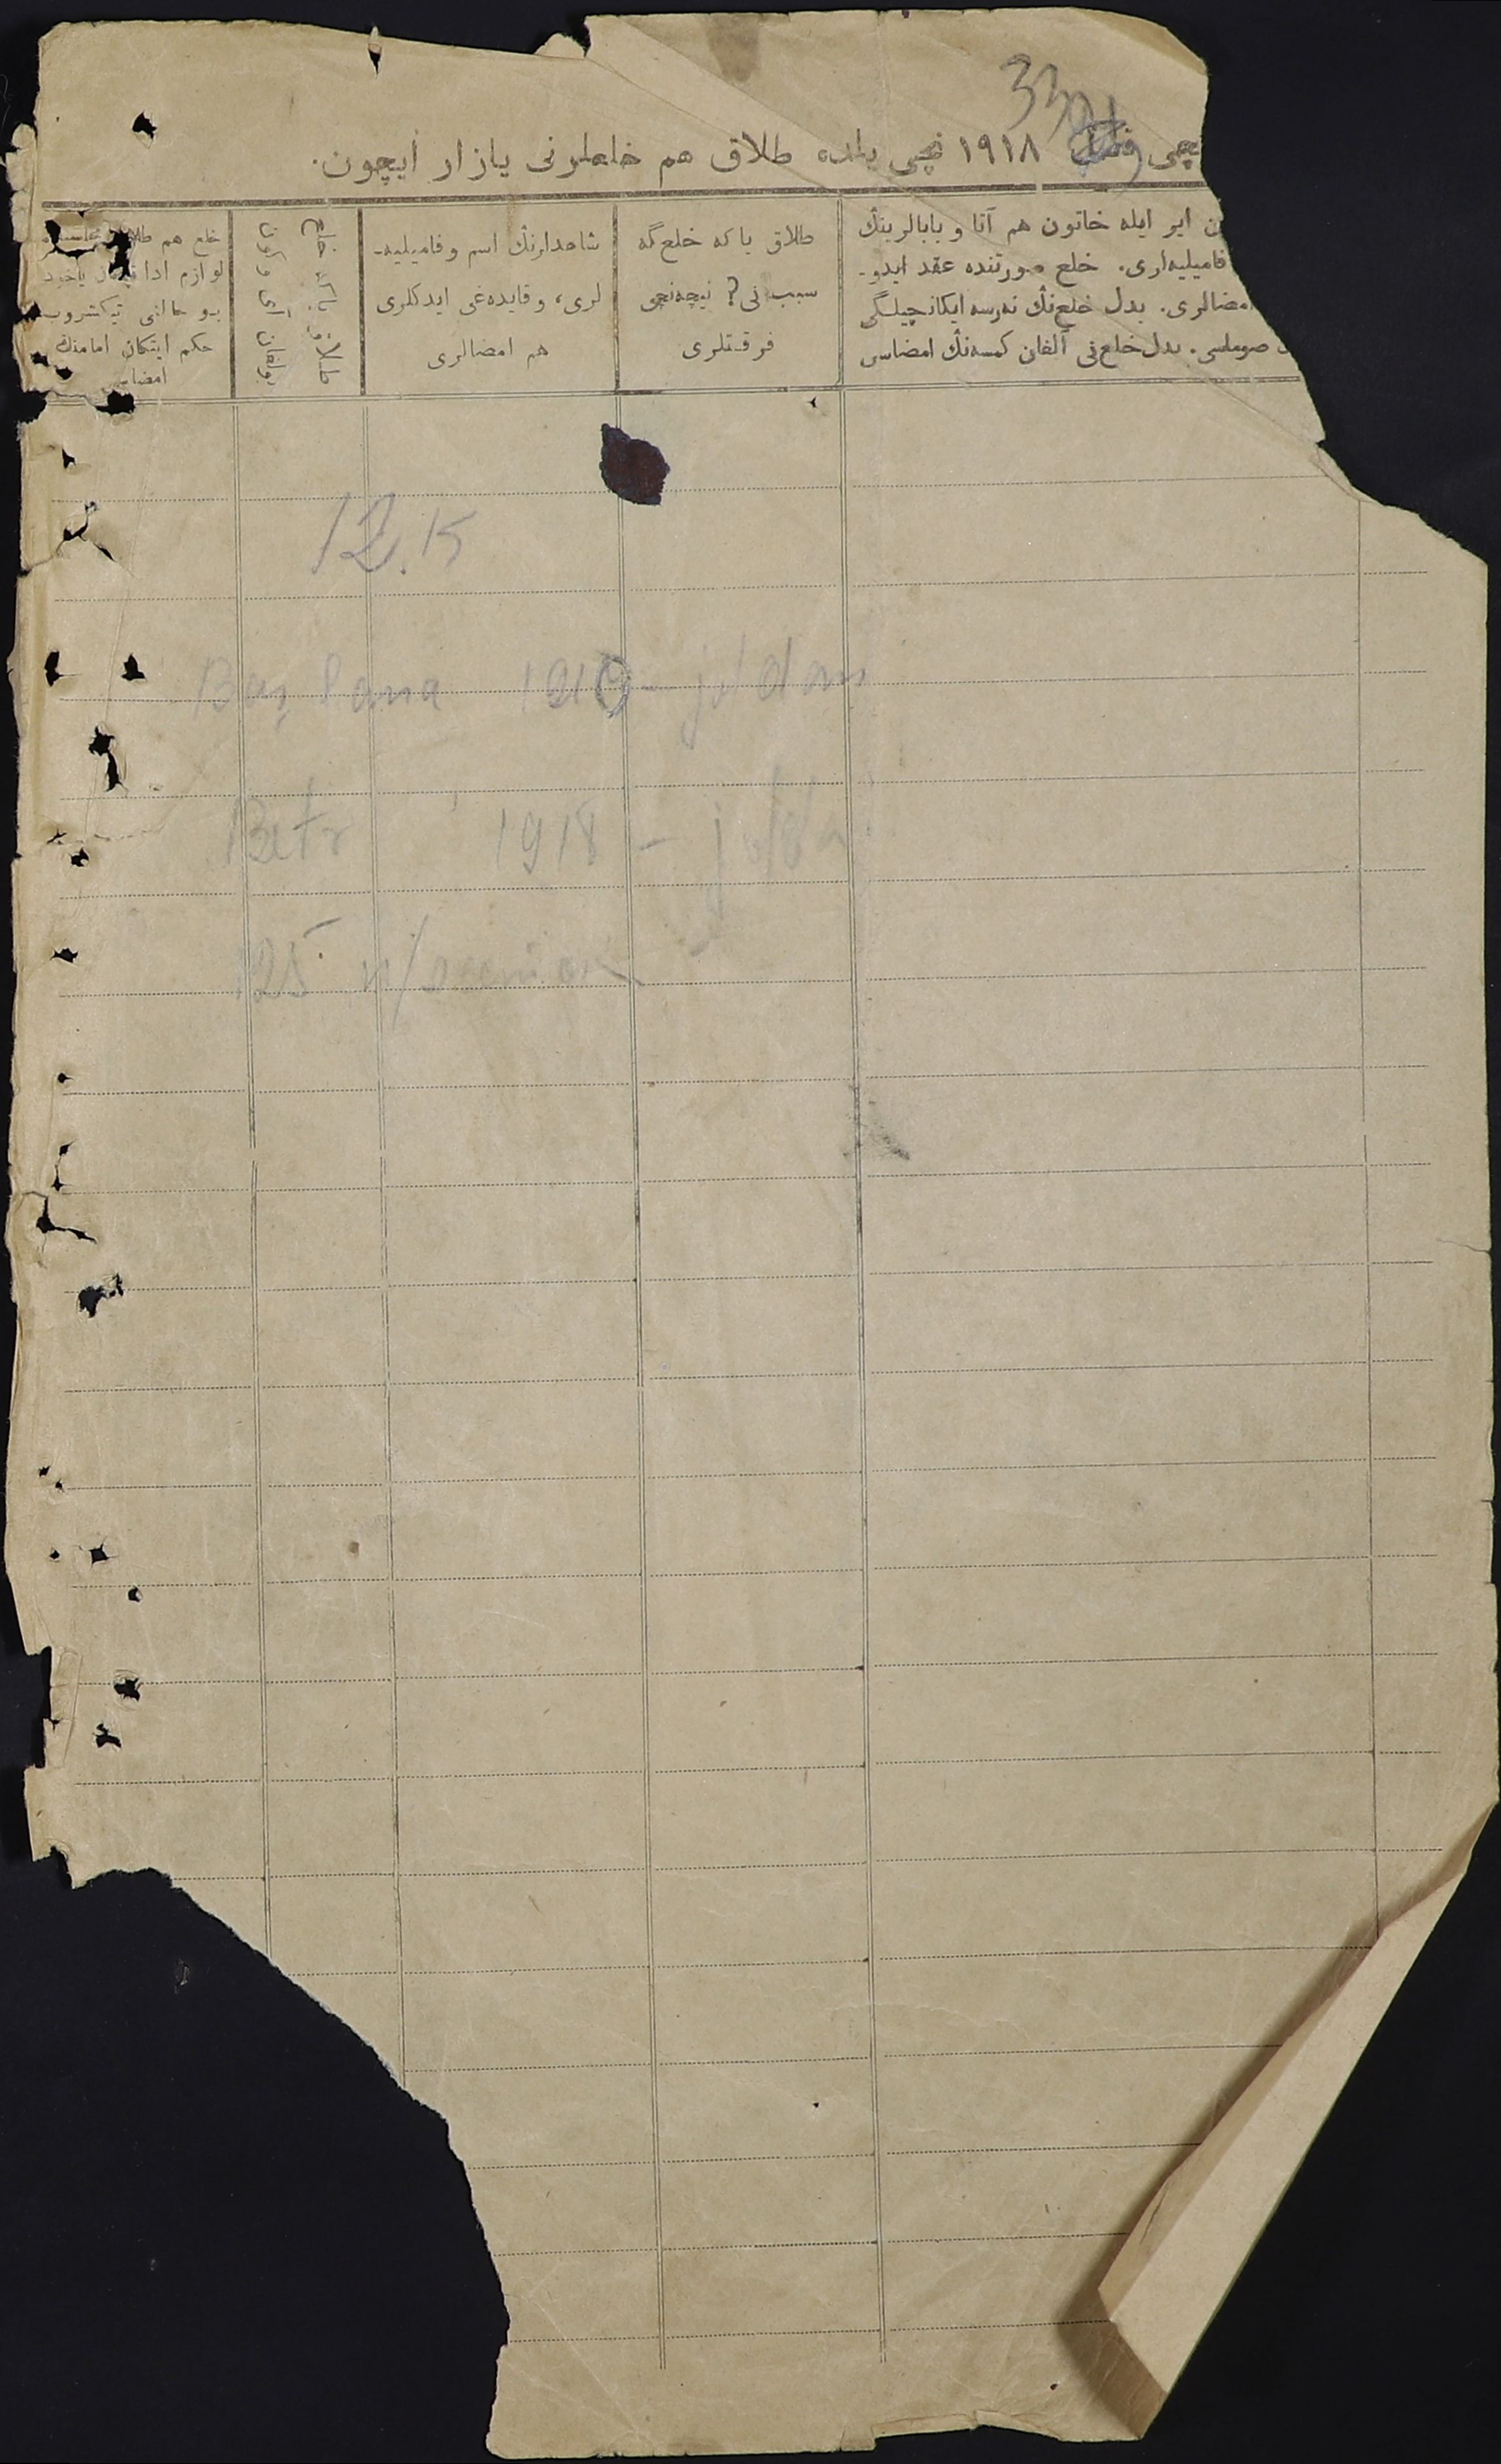 33
نچی ١٩١٨ نچی یلده طلاق هم خلعلرنی یازار ایچون.
ن ایر ایله خاتون هم آتا و بابالرینڭ
فامیلیه‌لری. خلع صورتنده عقد ایدو-
امضالری. بدل خلع‌نڭ نه‌رسه ایکانچیلگی
صوملسی. بدل خلع‌نی آلغان کمسه‌نڭ امضاسی
طلاق یا که خلع گه
سبب نی؟ نیچه‌نچی
فرقتلری
شاهدلرنڭ اسم و فامیلیه-
لری، و فایده‌غی ایدکلری
هم امضالری
طلاق یا که خلع
بولغان آی و کون
خلع هم
لوازم ادا یاخود
بو حالنی تیکشروب
حکم ایتکان امامنڭ
امضاسی
12.15
Başlana 1910 - jьldan
Betə 1918 - jьlda
125